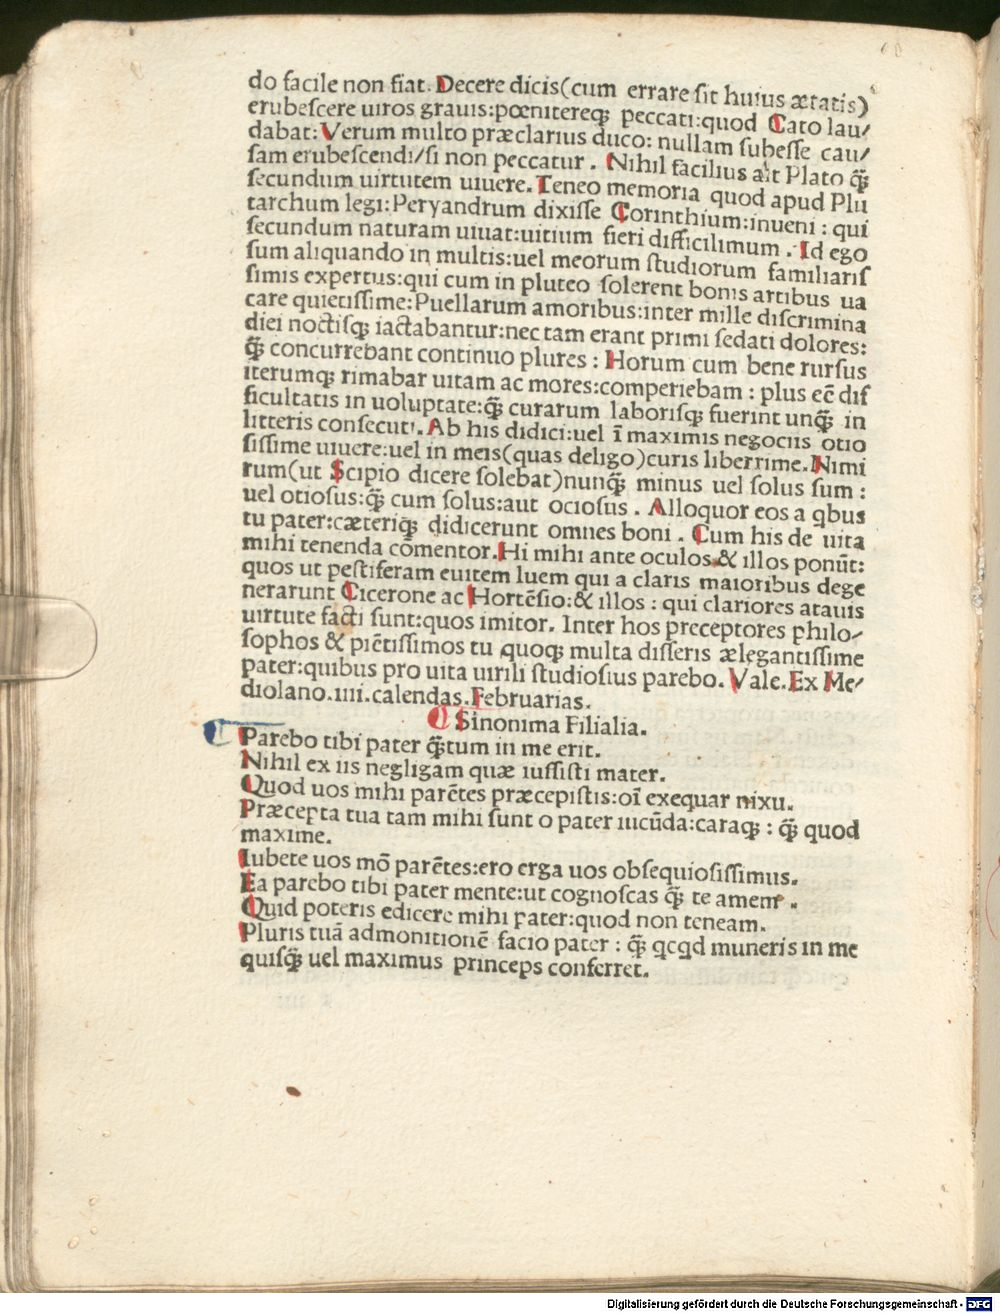 do facile non fiat. Decere dicis(cum errare sit huius ætatis)
erubescere uiros grauis:pœnitereq; peccati:quod Cato lau/
dabat: Verum multo præclarius duco: nullam subesse cau/
sam erubescendi/si non peccatur . Nihil facilius ait Plato q̃;
secundum uirtutem uiuere. Teneo memoria quod apud Plu
tarchum legi:Peryandrum dixisse Corinthium:inueni : qui
secundum naturam uiuat:uitium fieri difficilimum . Id ego
sum aliquando in multis:uel meorum studiorum familiaris
simis expertus:qui cum in pluteo solerent bonis artibus ua
care quietissime:Puellarum amoribus:inter mille discrimina
diei noctisq; iactabantur:nec tam erant primi sedati dolores:
q̃; concurrebant continuo plures : Horum cum bene rursus
iterumq; rimabar uitam ac mores:comperiebam : plus eē dif
ficultatis in uoluptate:q̃; curarum laborisq; fuerint unq̃; in
litteris consecuti. Ab his didici:uel ī maximis negociis otio
sissime uiuere:uel in meis(quas deligo)curis liberrime. Nimi
rum(ut Scipio dicere solebat)nunq̃; minus uel solus sum :
uel otiosus:q̃; cum solus:aut ociosus . Alloquor eos a qbus
tu pater:cæteriq; didicerunt omnes boni . Cum his de uita
mihi tenenda cōmentor. Hi mihi ante oculos & illos ponūt:
quos ut pestiferam euitem luem qui a claris maioribus dege
nerarunt Cicerone ac Hortēsio:& illos : qui clariores atauis
uirtute facti sunt:quos imitor. Inter hos preceptores philo/
sophos & piētissimos tu quoq; multa disseris ælegantissime
pater:quibus pro uita uirili studiosius parebo. Vale. Ex Me/
diolano.iiii.calendas.Februarias.
¶ Sinonima Filialia.
¶ Parebo tibi pater q̃;tum in me erit.
Nihil ex iis negligam quæ iussisti mater.
Quod uos mihi parētes præcepistis:oī exequar nixu.
Præcepta tua tam mihi sunt o pater iucūda:caraq; : q̃; quod
maxime.
Iubete uos mō parētes:ero erga uos obsequiosissimus.
Ea parebo tibi pater mente:ut cognoscas q̃; te amem .
Quid poteris edicere mihi pater:quod non teneam.
Pluris tuā admonitionē facio pater : q̃; qcqd muneris in me
quisq̃; uel maximus princeps conferret.
Digitalisierung gefördert durch die Deutsche Forschungsgemeinschaft - DFG